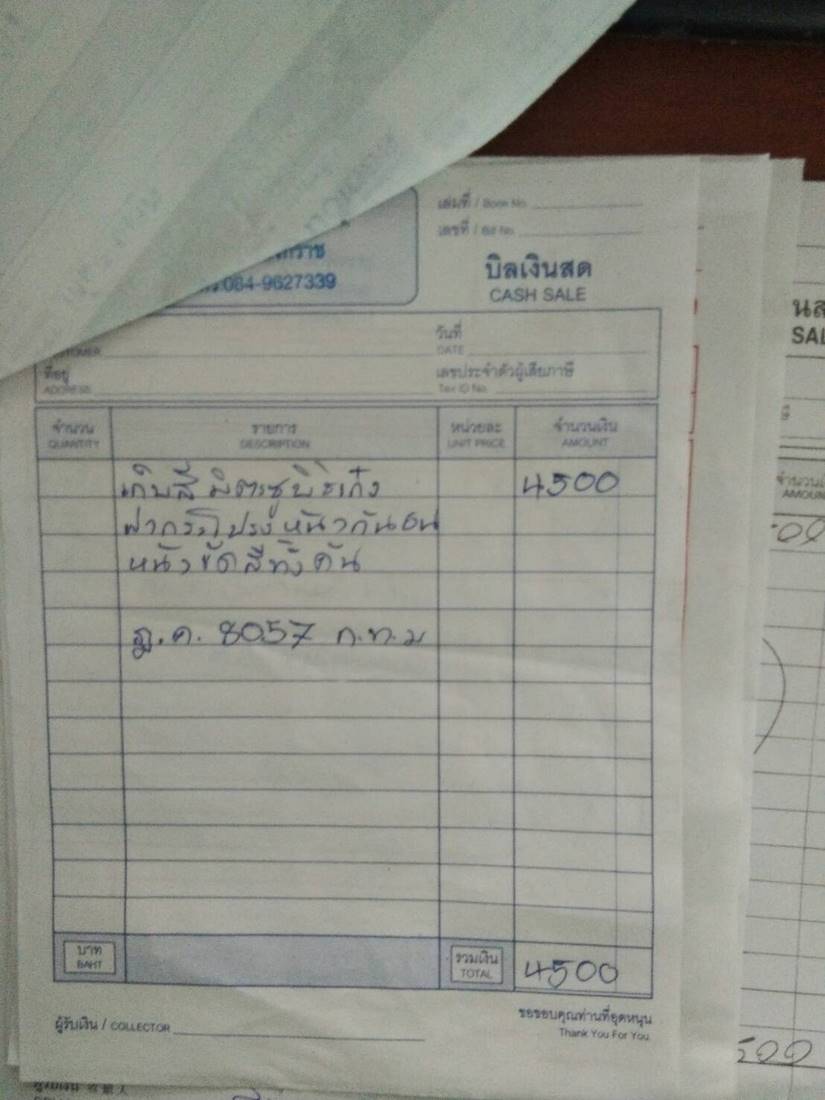 เล่มที่ / Book No.
เลขที่ / Bill No.
084-9627339
บิลเงินสด
CASH SALE
วันที่
DATE
ที่อยู่
ADDRESS
เลขประจำตัวผู้เสียภาษี
Tax ID No.
จำนวน รายการ หน่วยละ จำนวนเงิน
QUANTITY DESCRIPTION UNIT PRICE AMOUNT
เก็บสี มิตซูบิชิเก๋ง 4500
ฝากระโปรงหน้ากันชน
หน้า ขัดสีทั้งคัน
ฎ.ค. 8057 ก.ท.ม
บาท
BAHT
รวมเงิน
TOTAL
4500
ผู้รับเงิน / COLLECTOR
ขอขอบคุณท่านที่อุดหนุน
Thank You For You
SAL
จำนวนเ
AMOUN
500